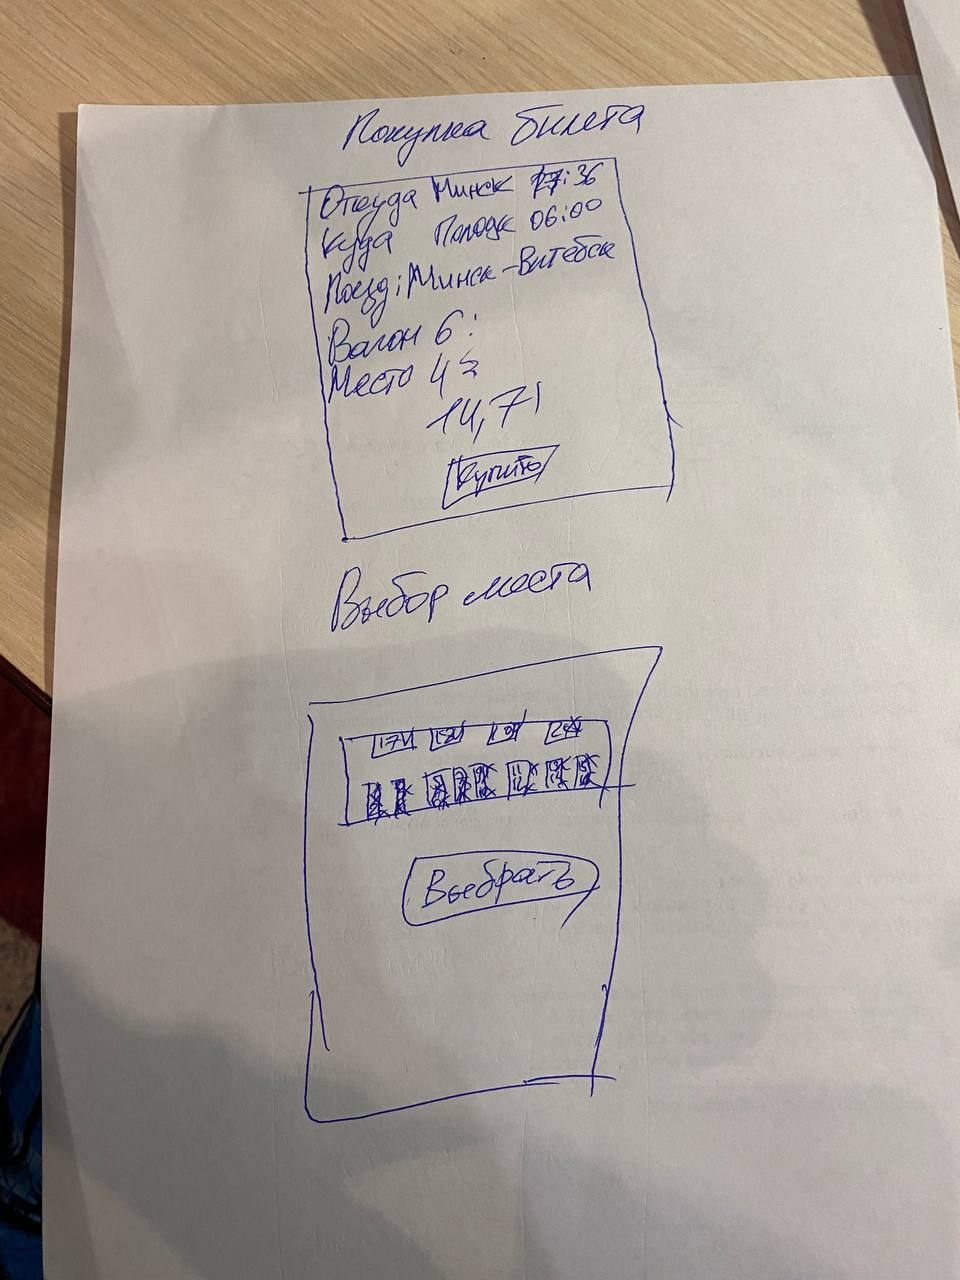 Покупка билета
Откуда Минск :36
Куда Полоцк 06:00
Поезд: Минск-Витебск
Вагон 6:
Место 43
14,71
Купить
Выбор места
Выбрать